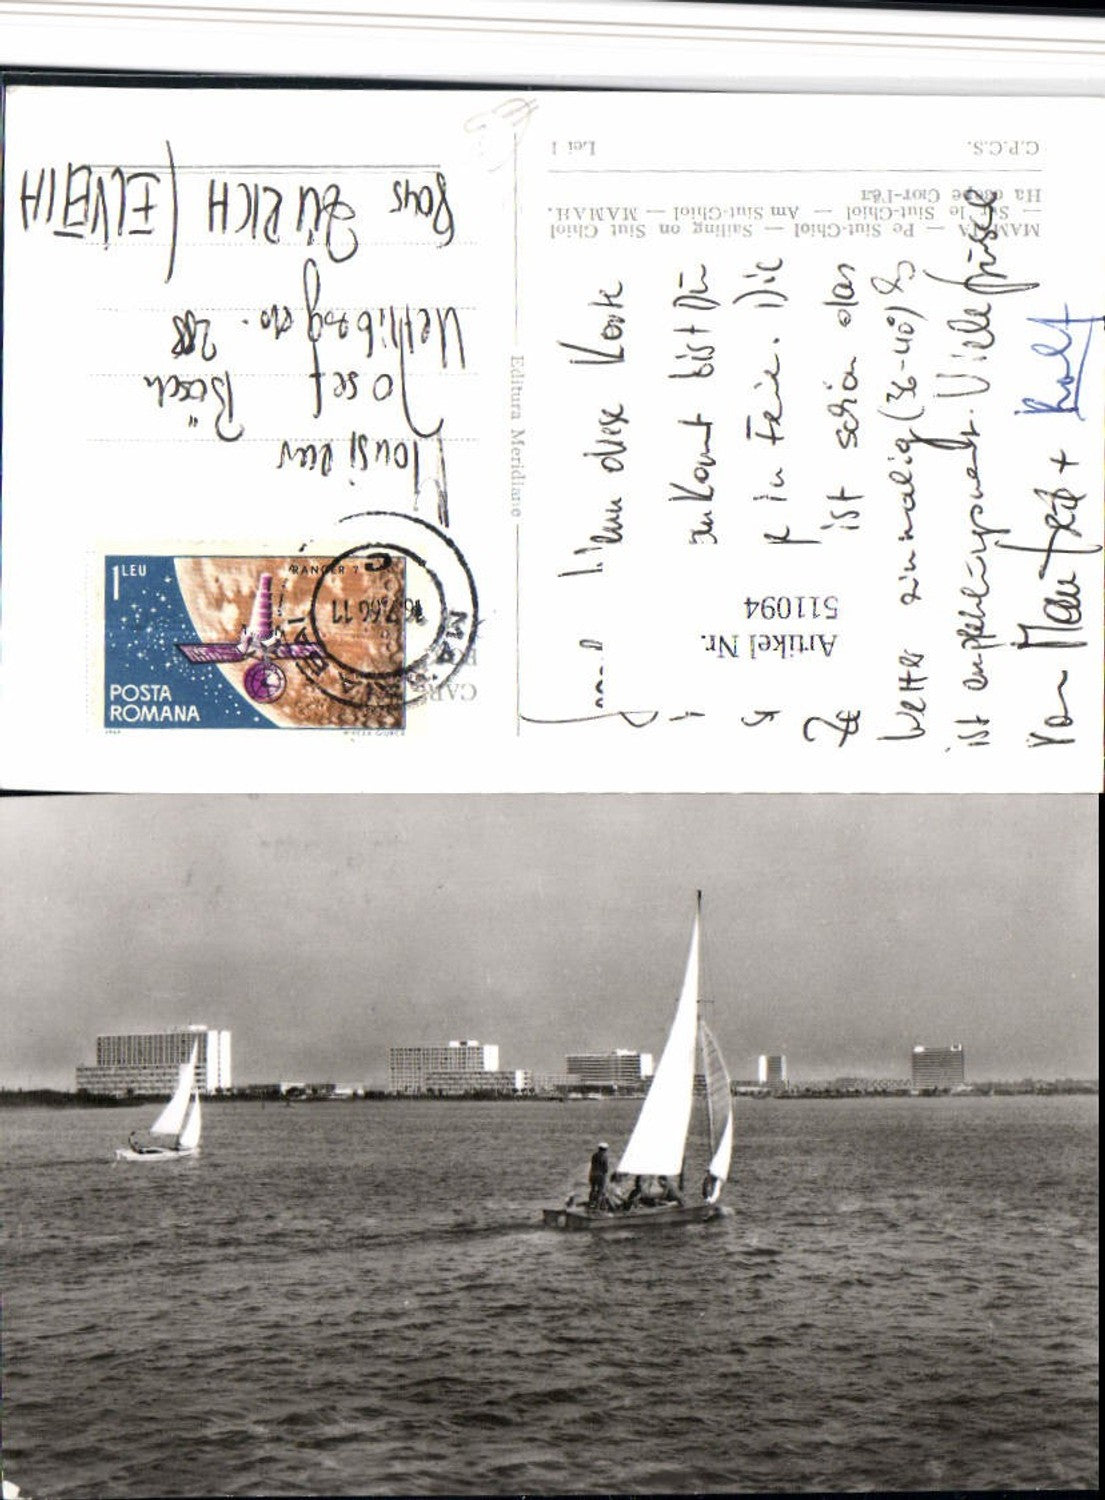 C.P.C.S. Lei 1
MAMAIA — Pe Siut-Chiol — Sailing on Siut Chiol
— Sur le Siut-Chiol — Am Siut-Chiol — МАМАЯ.
На озере Сют-Гёл
Editura Meridiane
Artikel Nr.
511094
Wenn diese Karte
ankommt bist Du
in Ferien. Die
ist schön das
Wetter einmalig (36-40°) Es
ist empfehlenswert. Viele Grüsse
von Manfred + Rolf
Monsieur
Josef Bösch
Uetlibergstr. 288
8045 ZÜRICH (ELVETIA
1 LEU
RANGER 7
POSTA
ROMANA
16.7.66 11